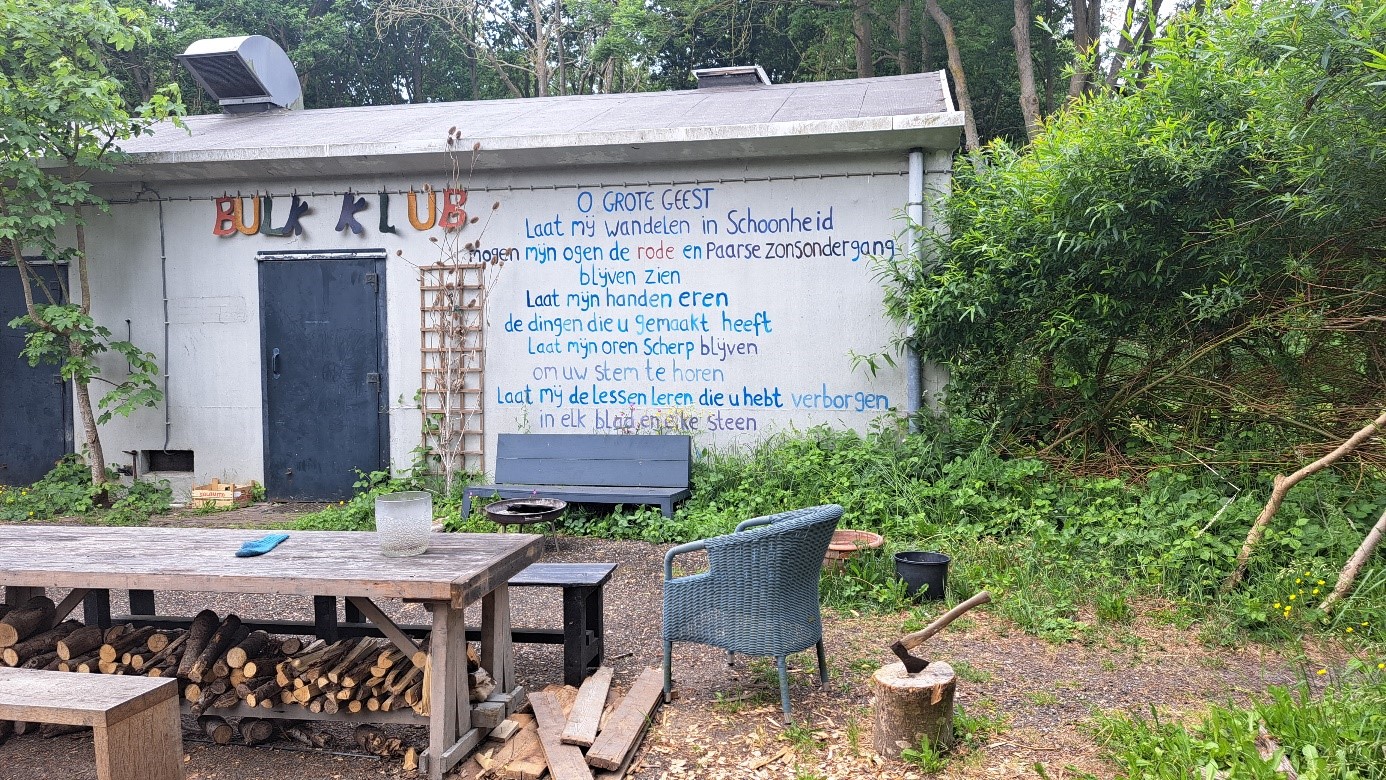 BULK KLUB
O GROTE GEEST
Laat mij wandelen in Schoonheid
mogen mijn ogen de rode en Paarse zonsondergang
blijven zien
Laat mijn handen eren
de dingen die u gemaakt heeft
Laat mijn oren Scherp blijven
om uw stem te horen
Laat mij de lessen leren die u hebt verborgen
in elk blad en elke steen